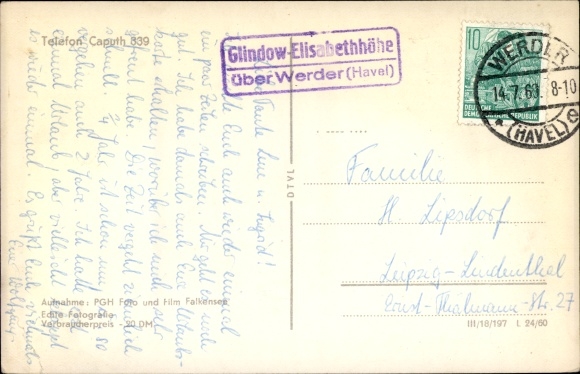 Telefon Caputh 839
Glindow-Elisabethhöhe
über Werder (Havel)
10
DEUTSCHE
DEMOKRATISCHE REPUBLIK
WERDER
14.7.61 8-10
(HAVEL) e
Liebe Tante Lene u. Ingrid!
Euch auch wieder einmal
ein paar Zeilen schreiben. Mir geht es noch
gut. Ich habe damals auch Eure Urlaubs-
karte erhalten, worüber ich mich sehr
gefreut habe. Die Zeit vergeht ziemlich
schnell. ¼ Jahr ist schon um, so
vergehen auch 2 Jahre. Ich hatte
einmal Urlaub, vielleicht klappt
es wieder einmal. Es grüßt Euch vielmals
Euer Wolfgang.
Familie
H. Lipsdorf
Leipzig-Lindenthal
Ernst-Thälmann-Str. 27
DTVL
Aufnahme: PGH Foto und Film Falkensee
Echte Fotografie
Verbraucherpreis -,20 DM
III/18/197 L 24/60